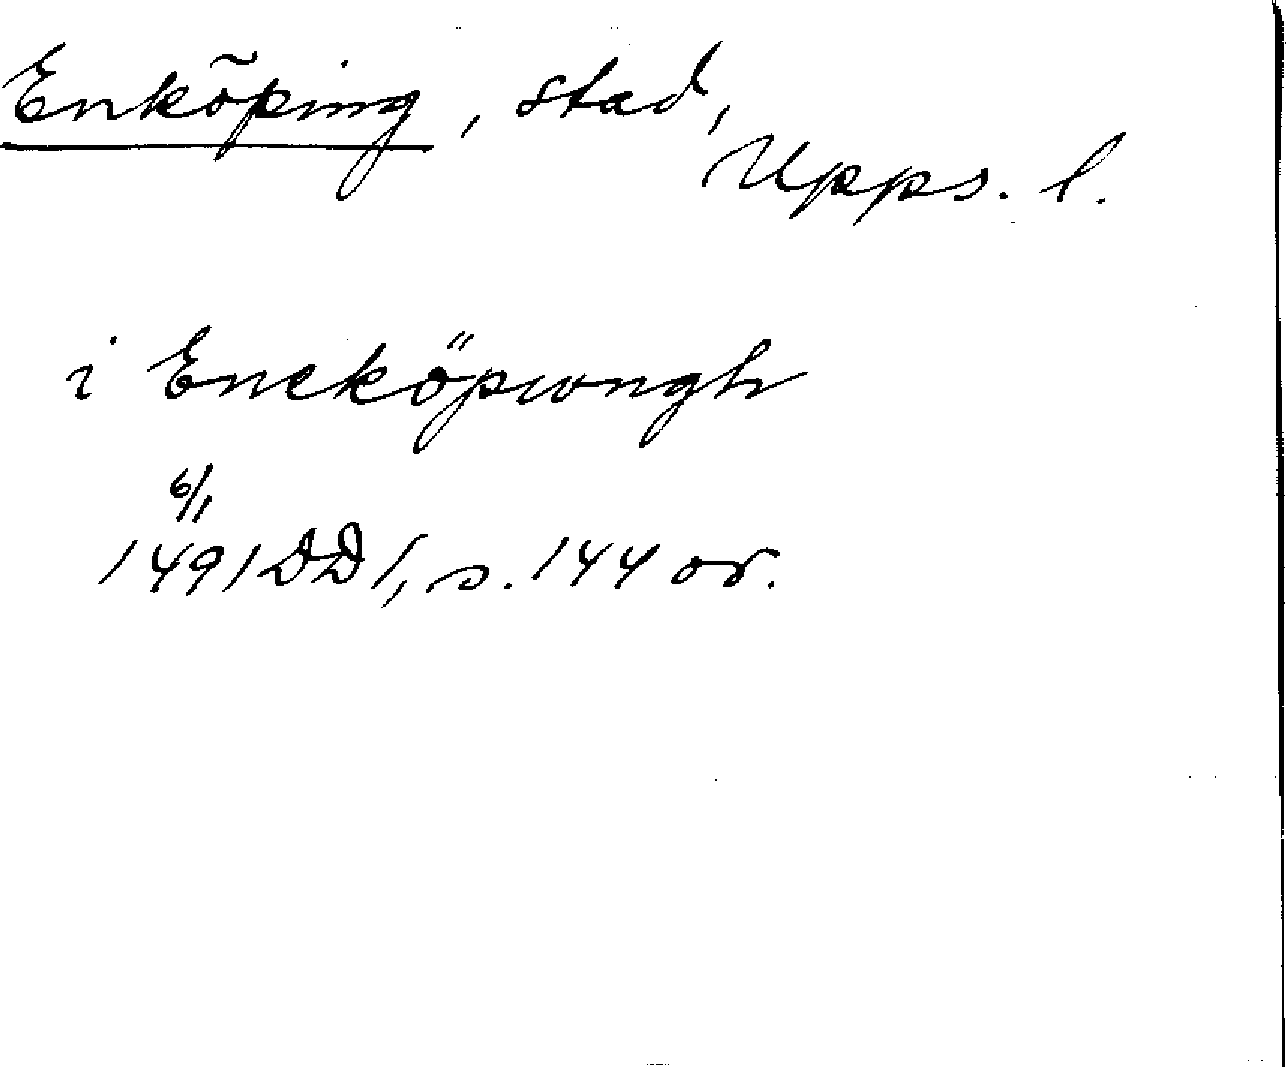 Enköping, stad,
Upps. l.
i Eneköpungh
6/1
1491 DD 1, s. 144 or.